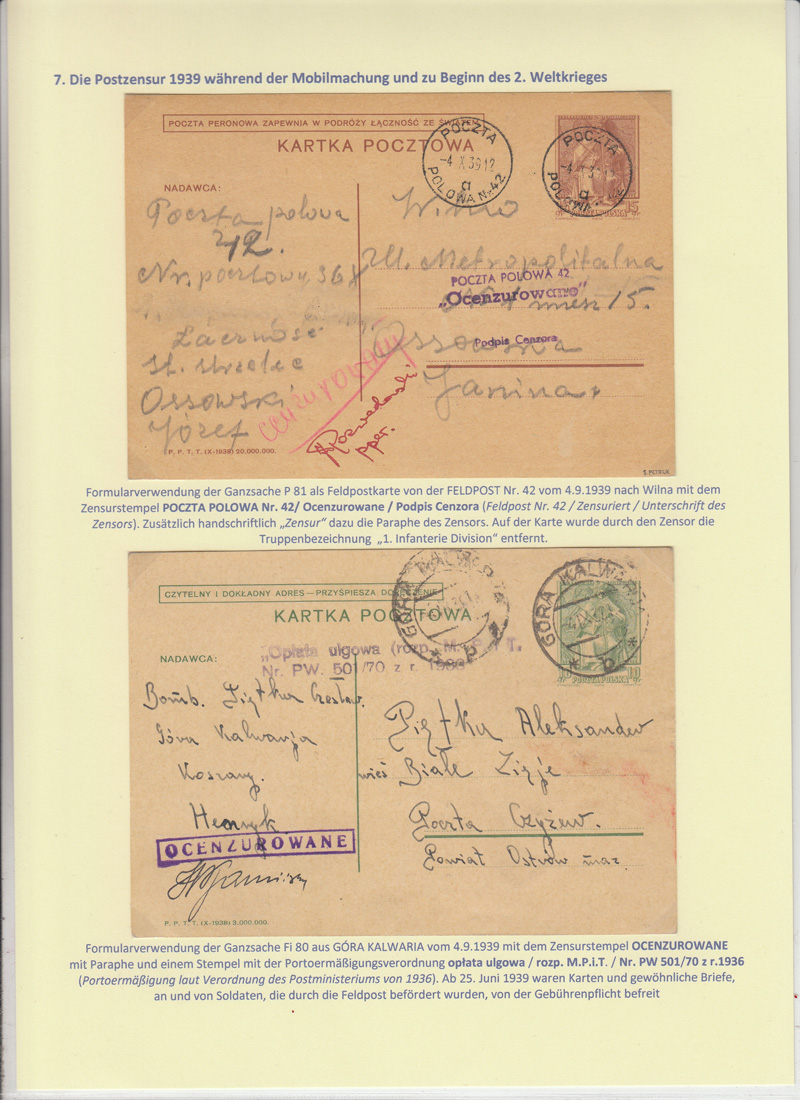 7. Die Postzensur 1939 während der Mobilmachung und zu Beginn des 2. Weltkrieges
POCZTA PERONOWA ZAPEWNIA W PODRÓŻY ŁĄCZNOŚĆ ZE ŚWIATEM
KARTKA POCZTOWA
POCZTA
-4 X 39 12
a
POLOWA Nr 42
POCZTA
a
POLOWA
15
POCZTA POLSKA
NADAWCA:
Poczta polowa
42.
Nr. pocztowy 368
Łączność
st. strzelec
Ossowski
Józef
Wilno
Ul. Metropolitalna
POCZTA POLOWA 42
„Ocenzurowano"
miesz 15.
Podpis Cenzora
Ossowska
Janina
cenzurowany
ppor.
P. P. T. T. (X-1938) 20.000.000.
Formularverwendung der Ganzsache P 81 als Feldpostkarte von der FELDPOST Nr. 42 vom 4.9.1939 nach Wilna mit dem
Zensurstempel POCZTA POLOWA Nr. 42/ Ocenzurowane / Podpis Cenzora (Feldpost Nr. 42 / Zensuriert / Unterschrift des
Zensors). Zusätzlich handschriftlich „Zensur" dazu die Paraphe des Zensors. Auf der Karte wurde durch den Zensor die
Truppenbezeichnung „1. Infanterie Division" entfernt.
CZYTELNY I DOKŁADNY ADRES—PRZYŚPIESZA DORĘCZENIE
KARTKA POCZTOWA
GÓRA KALWARIA
GÓRA KALWARIA
b
10 10
POCZTA POLSKA
„Opłata ulgowa (rozp. M. P. i T.
Nr. PW. 501/70 z r. 1936
NADAWCA:
Bomb. Piętka Czesław
Góra Kalwarja
Koszary.
Henryk
OCENZUROWANE
Piętka Aleksander
wieś Białe Zieje
Poczta Czyżew.
Powiat Ostrów maz.
P. P. T. T. (X-1938) 3.000.000.
Formularverwendung der Ganzsache Fi 80 aus GÓRA KALWARIA vom 4.9.1939 mit dem Zensurstempel OCENZUROWANE
mit Paraphe und einem Stempel mit der Portoermäßigungsverordnung opłata ulgowa / rozp. M.P.i.T. / Nr. PW 501/70 z r.1936
(Portoermäßigung laut Verordnung des Postministeriums von 1936). Ab 25. Juni 1939 waren Karten und gewöhnliche Briefe,
an und von Soldaten, die durch die Feldpost befördert wurden, von der Gebührenpflicht befreit